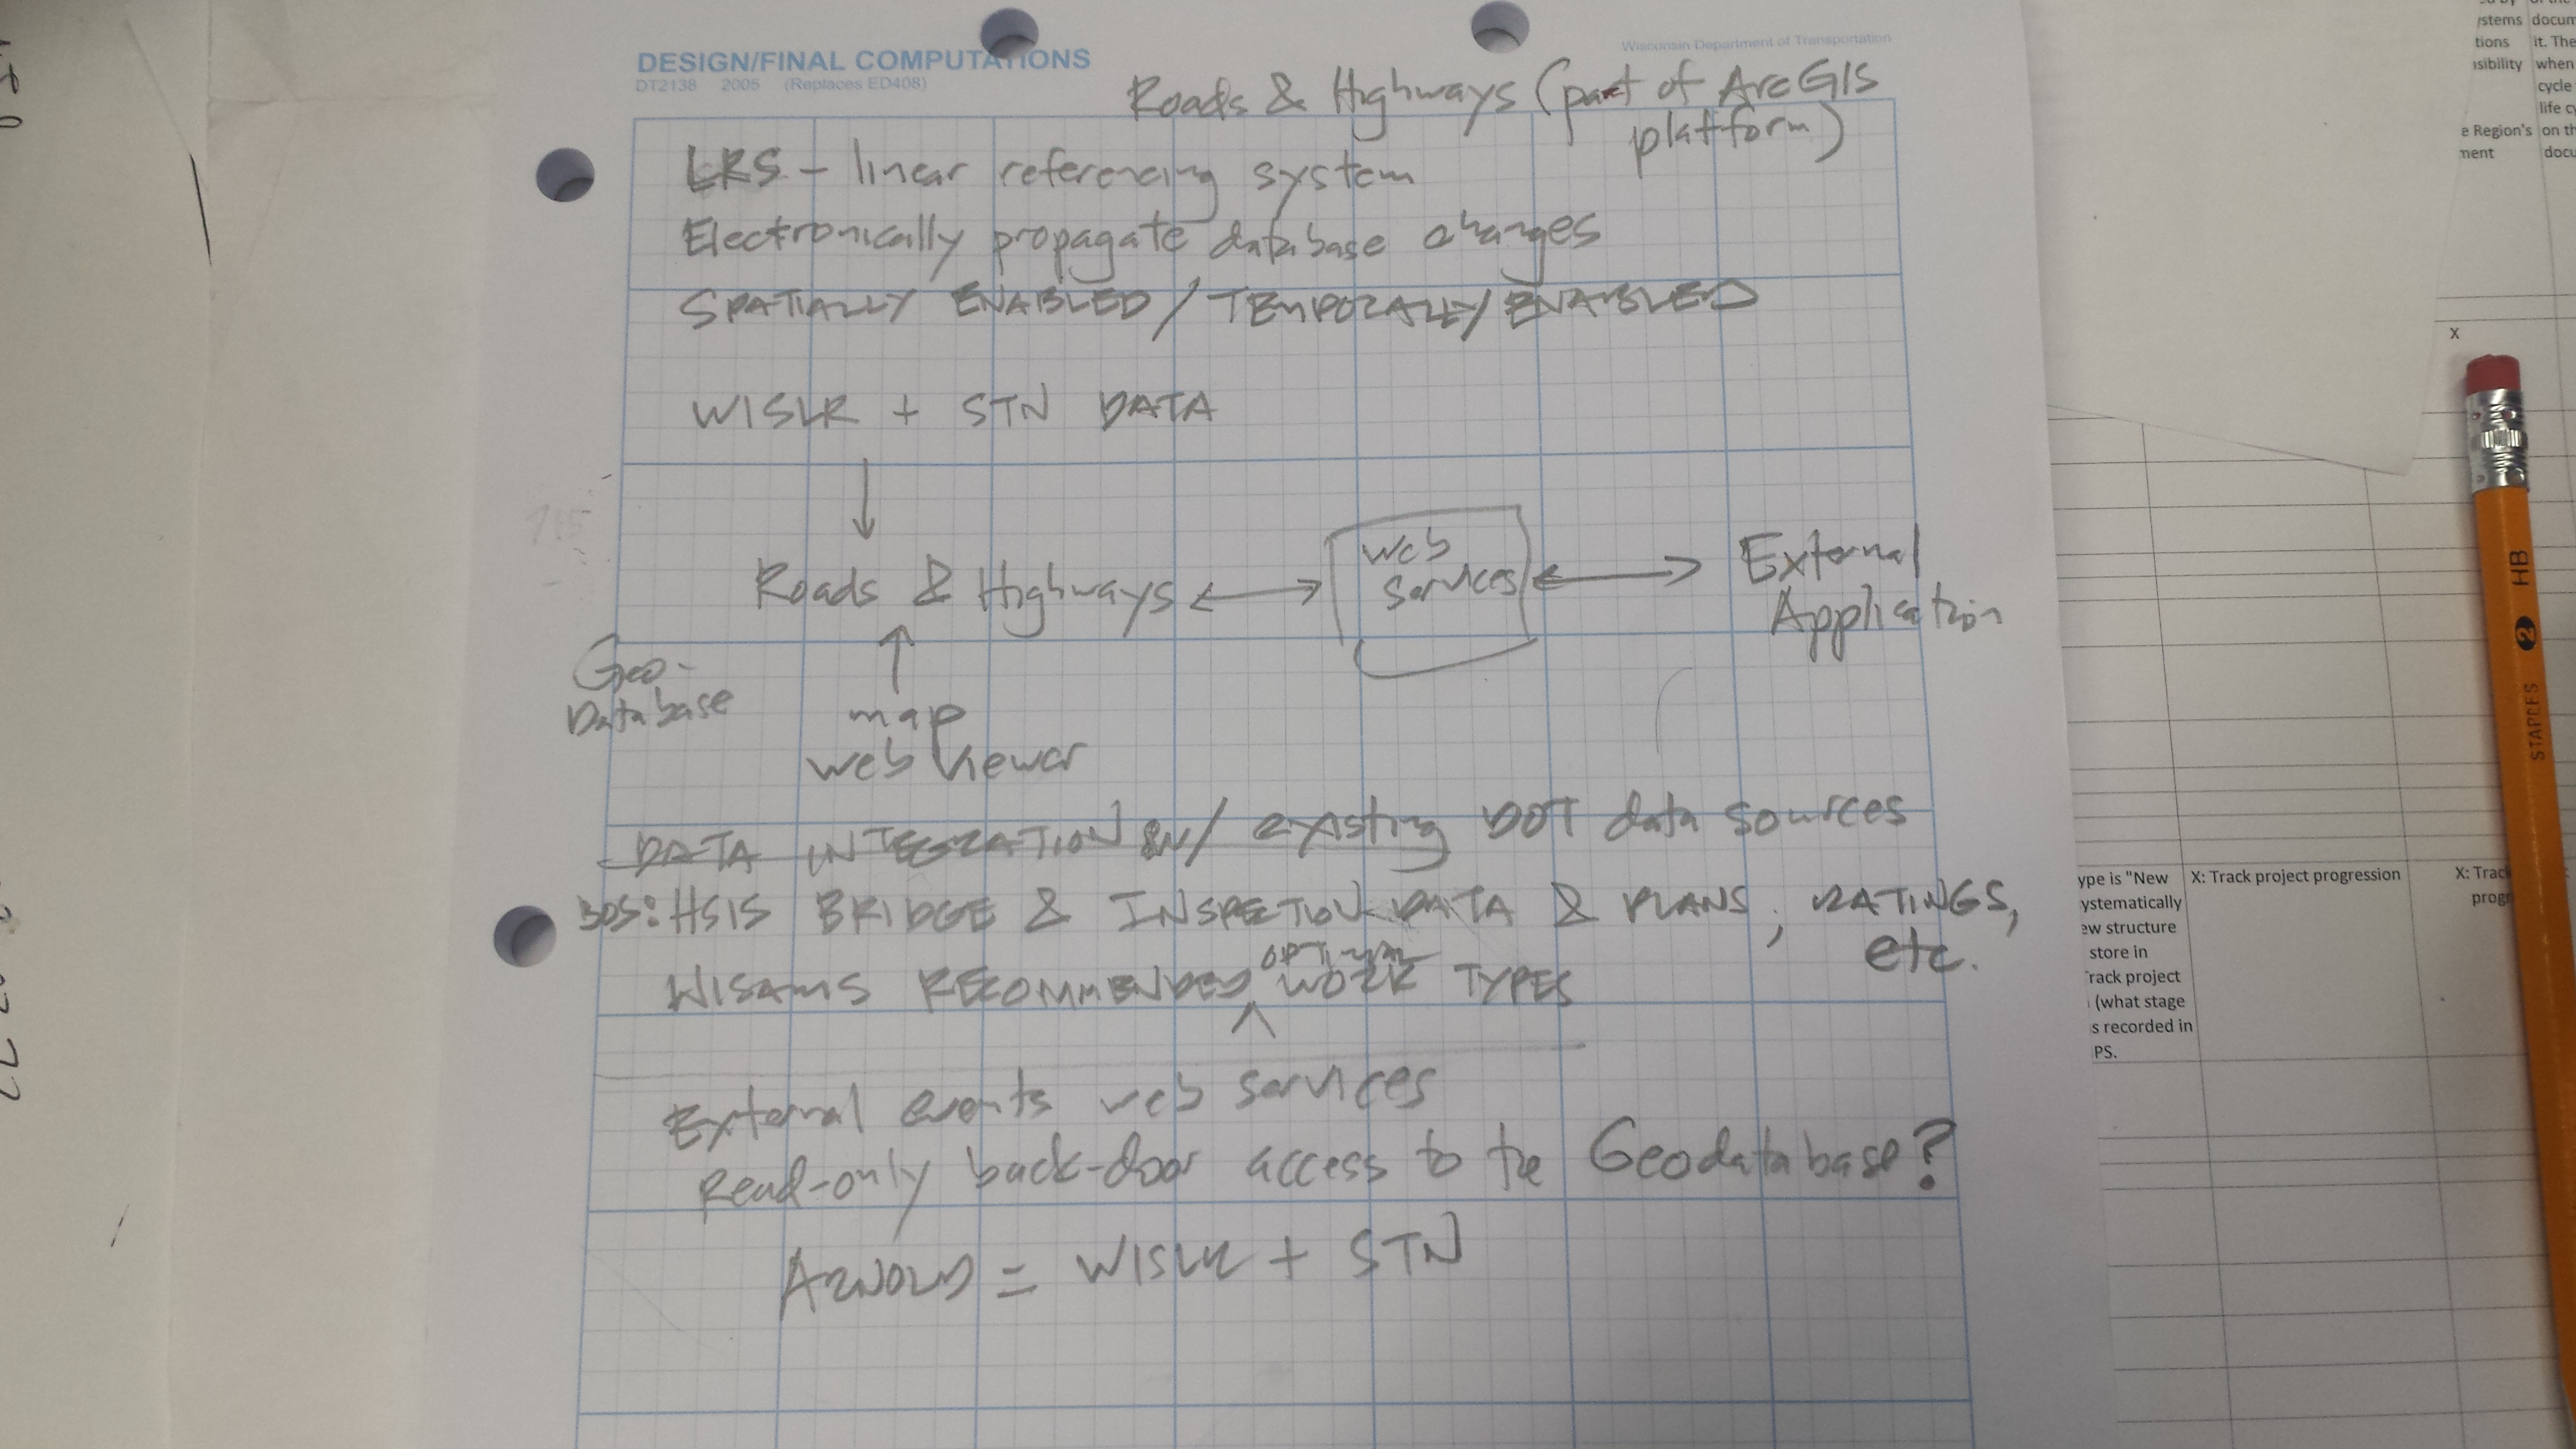 DESIGN/FINAL COMPUTATIONS
DT2138 2005 (Replaces ED408)
Wisconsin Department of Transportation
Roads & Highways (part of ArcGIS
platform)
LRS - linear referencing system
Electronically propagate database changes
SPATIALLY ENABLED / TEMPORALLY ENABLED
WISLR + STN DATA
Roads & Highways
Web
Services
External
Application
Geo-
Database
map
web viewer
DATA INTEGRATION w/ existing DOT data sources
BOS: HSIS BRIDGE & INSPECTION DATA & PLANS, RATINGS,
etc.
OPTIMAL
WISAMS RECOMMENDED WORK TYPES
External events web services
Read-only back-door access to the Geodatabase?
ARNOLD = WISLR + STN
ystems
tions
sibility
e Region's
ment
docum
it. The
when
cycle
life cy
on th
docu
X
ype is "New
ystematically
ew structure
store in
rack project
(what stage
s recorded in
PS.
X: Track project progression
X: Trac
progr
HB
2
STAPLES